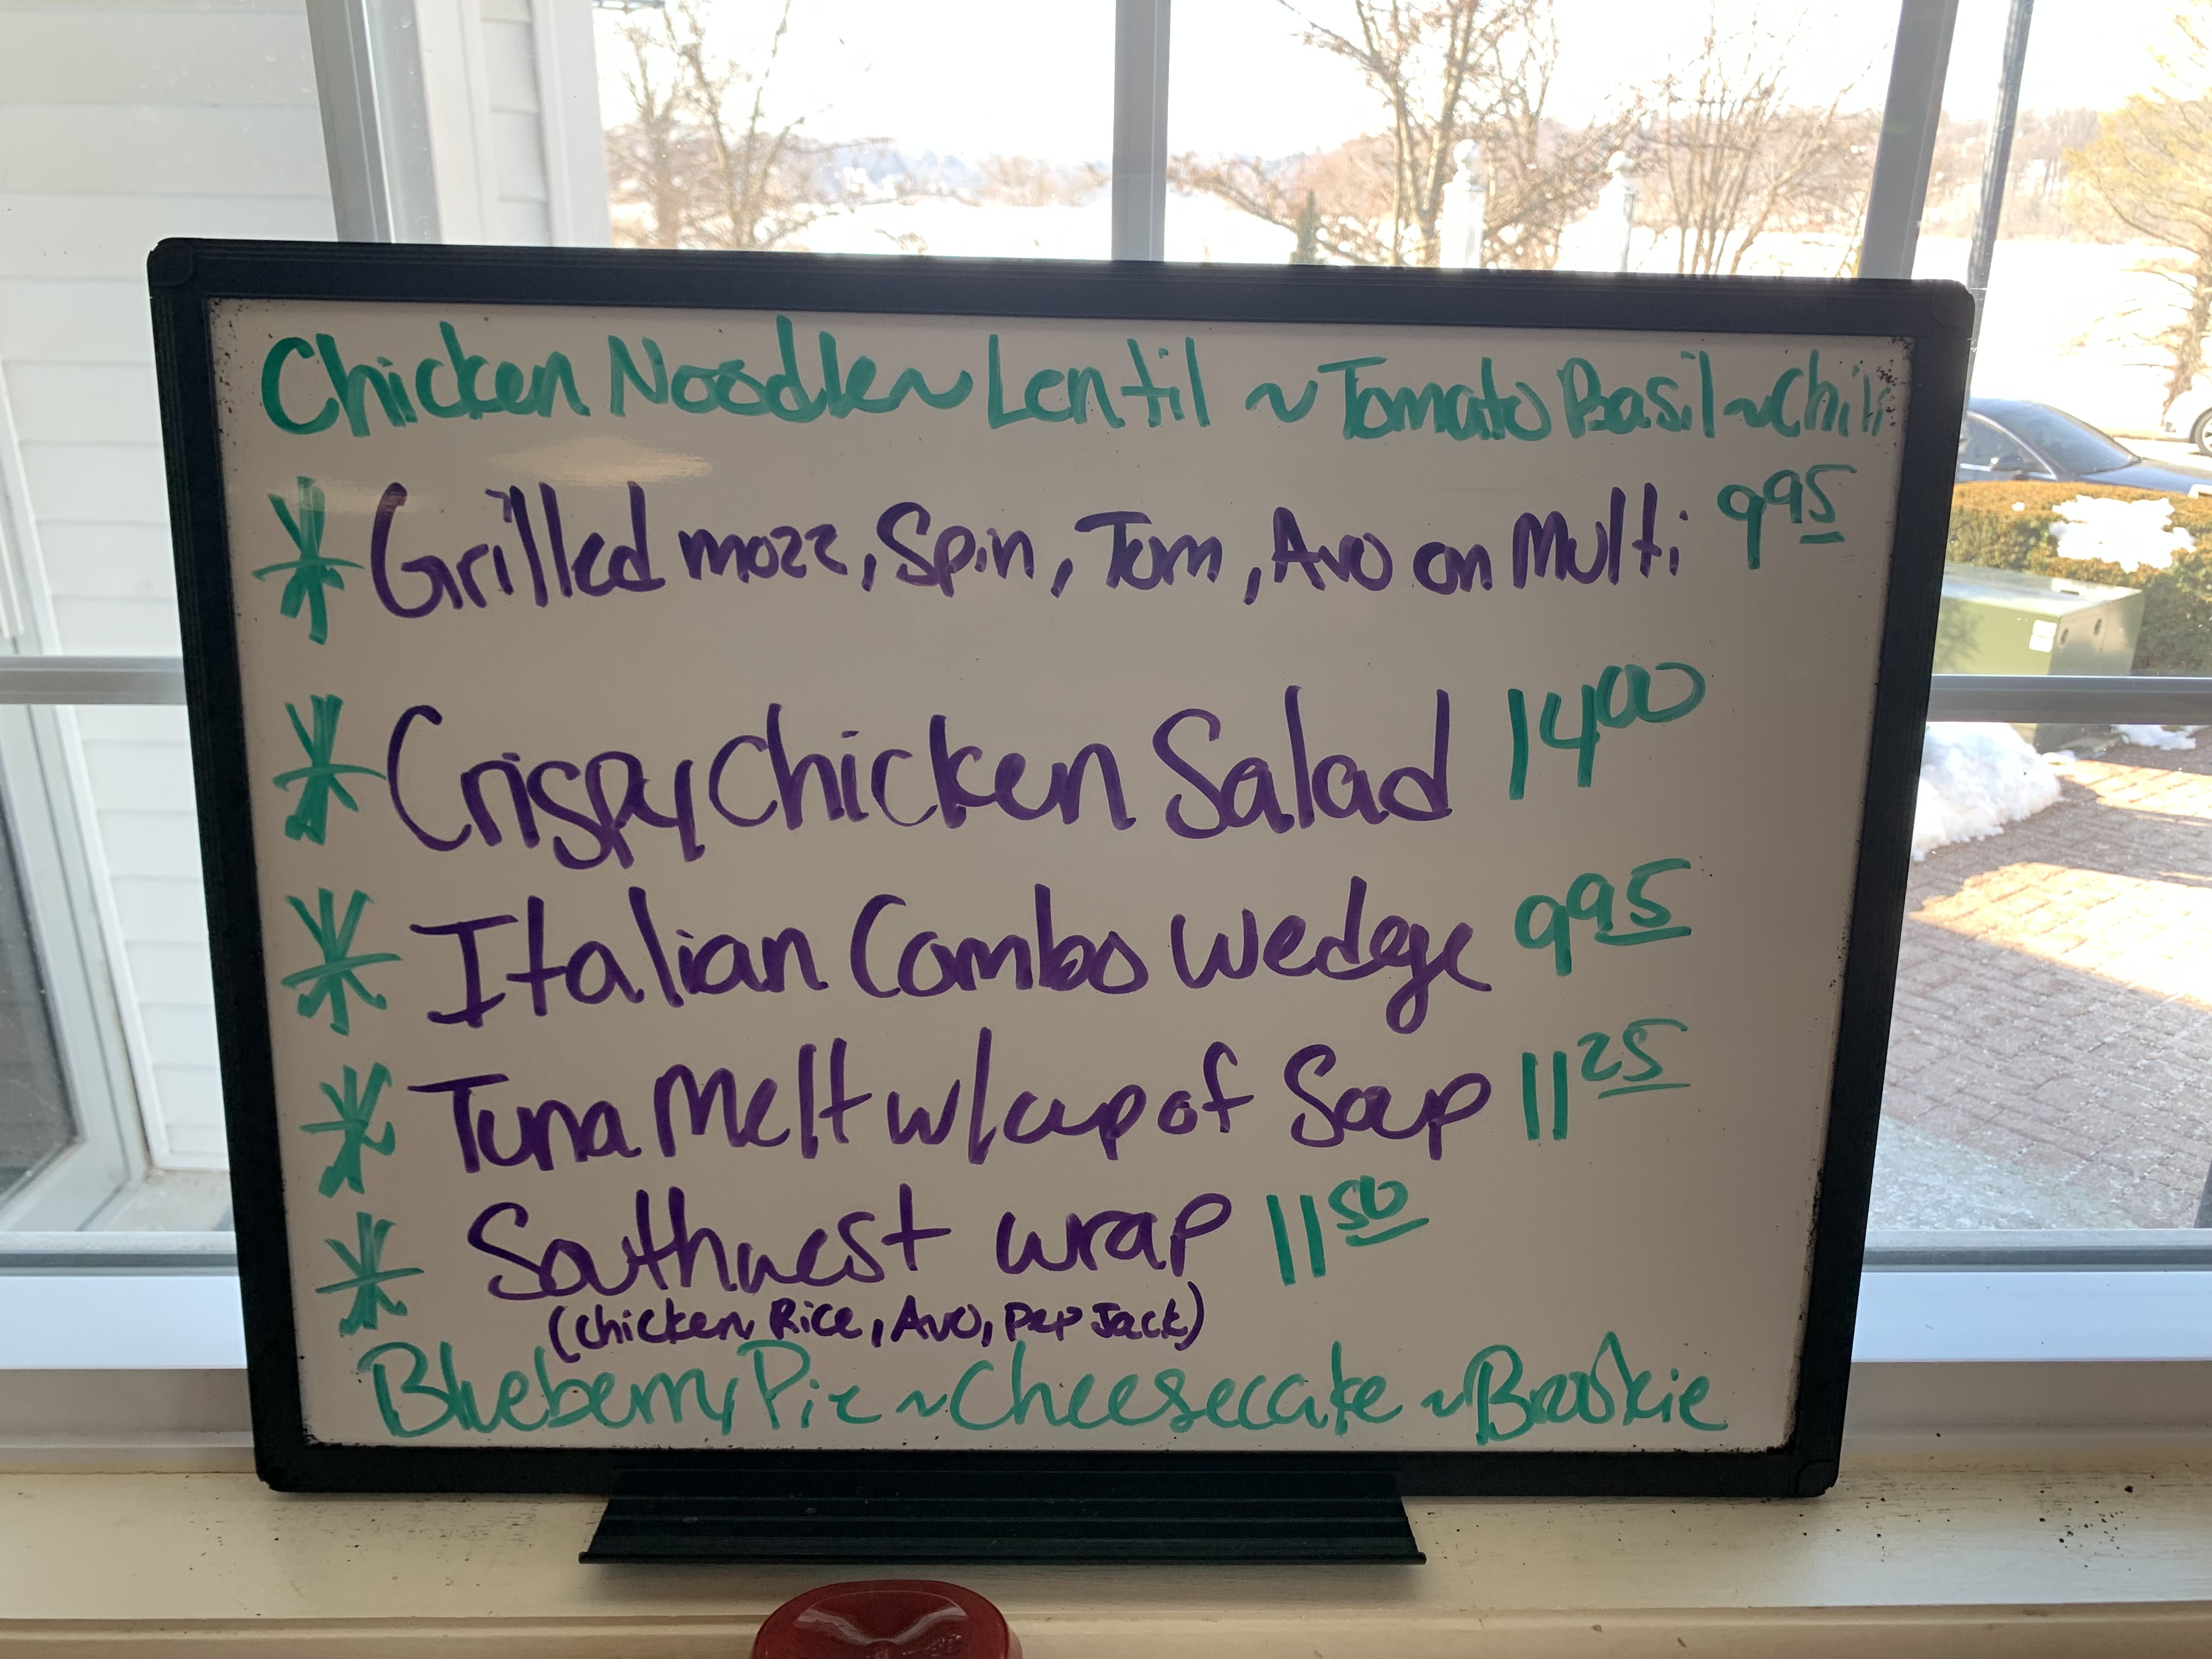 Chicken Noodle ~ Lentil ~ Tomato Basil ~ Chili
* Grilled mozz, Spin, Tom, Avo on Multi 9 95
* Crispy Chicken Salad 14 00
* Italian Combo Wedge 9 95
* Tuna Melt w/cup of Soup 11 25
* Southwest wrap 11 50
(chicken, Rice, Avo, pep Jack)
Blueberry Pie ~ Cheesecake ~ Brookie